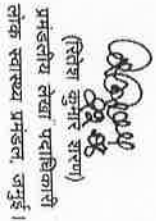 (रितेश कुमार शरण)
प्रमंडलीय लेखा पदाधिकारी
लोक स्वास्थ्य प्रमंडल, जमुई।